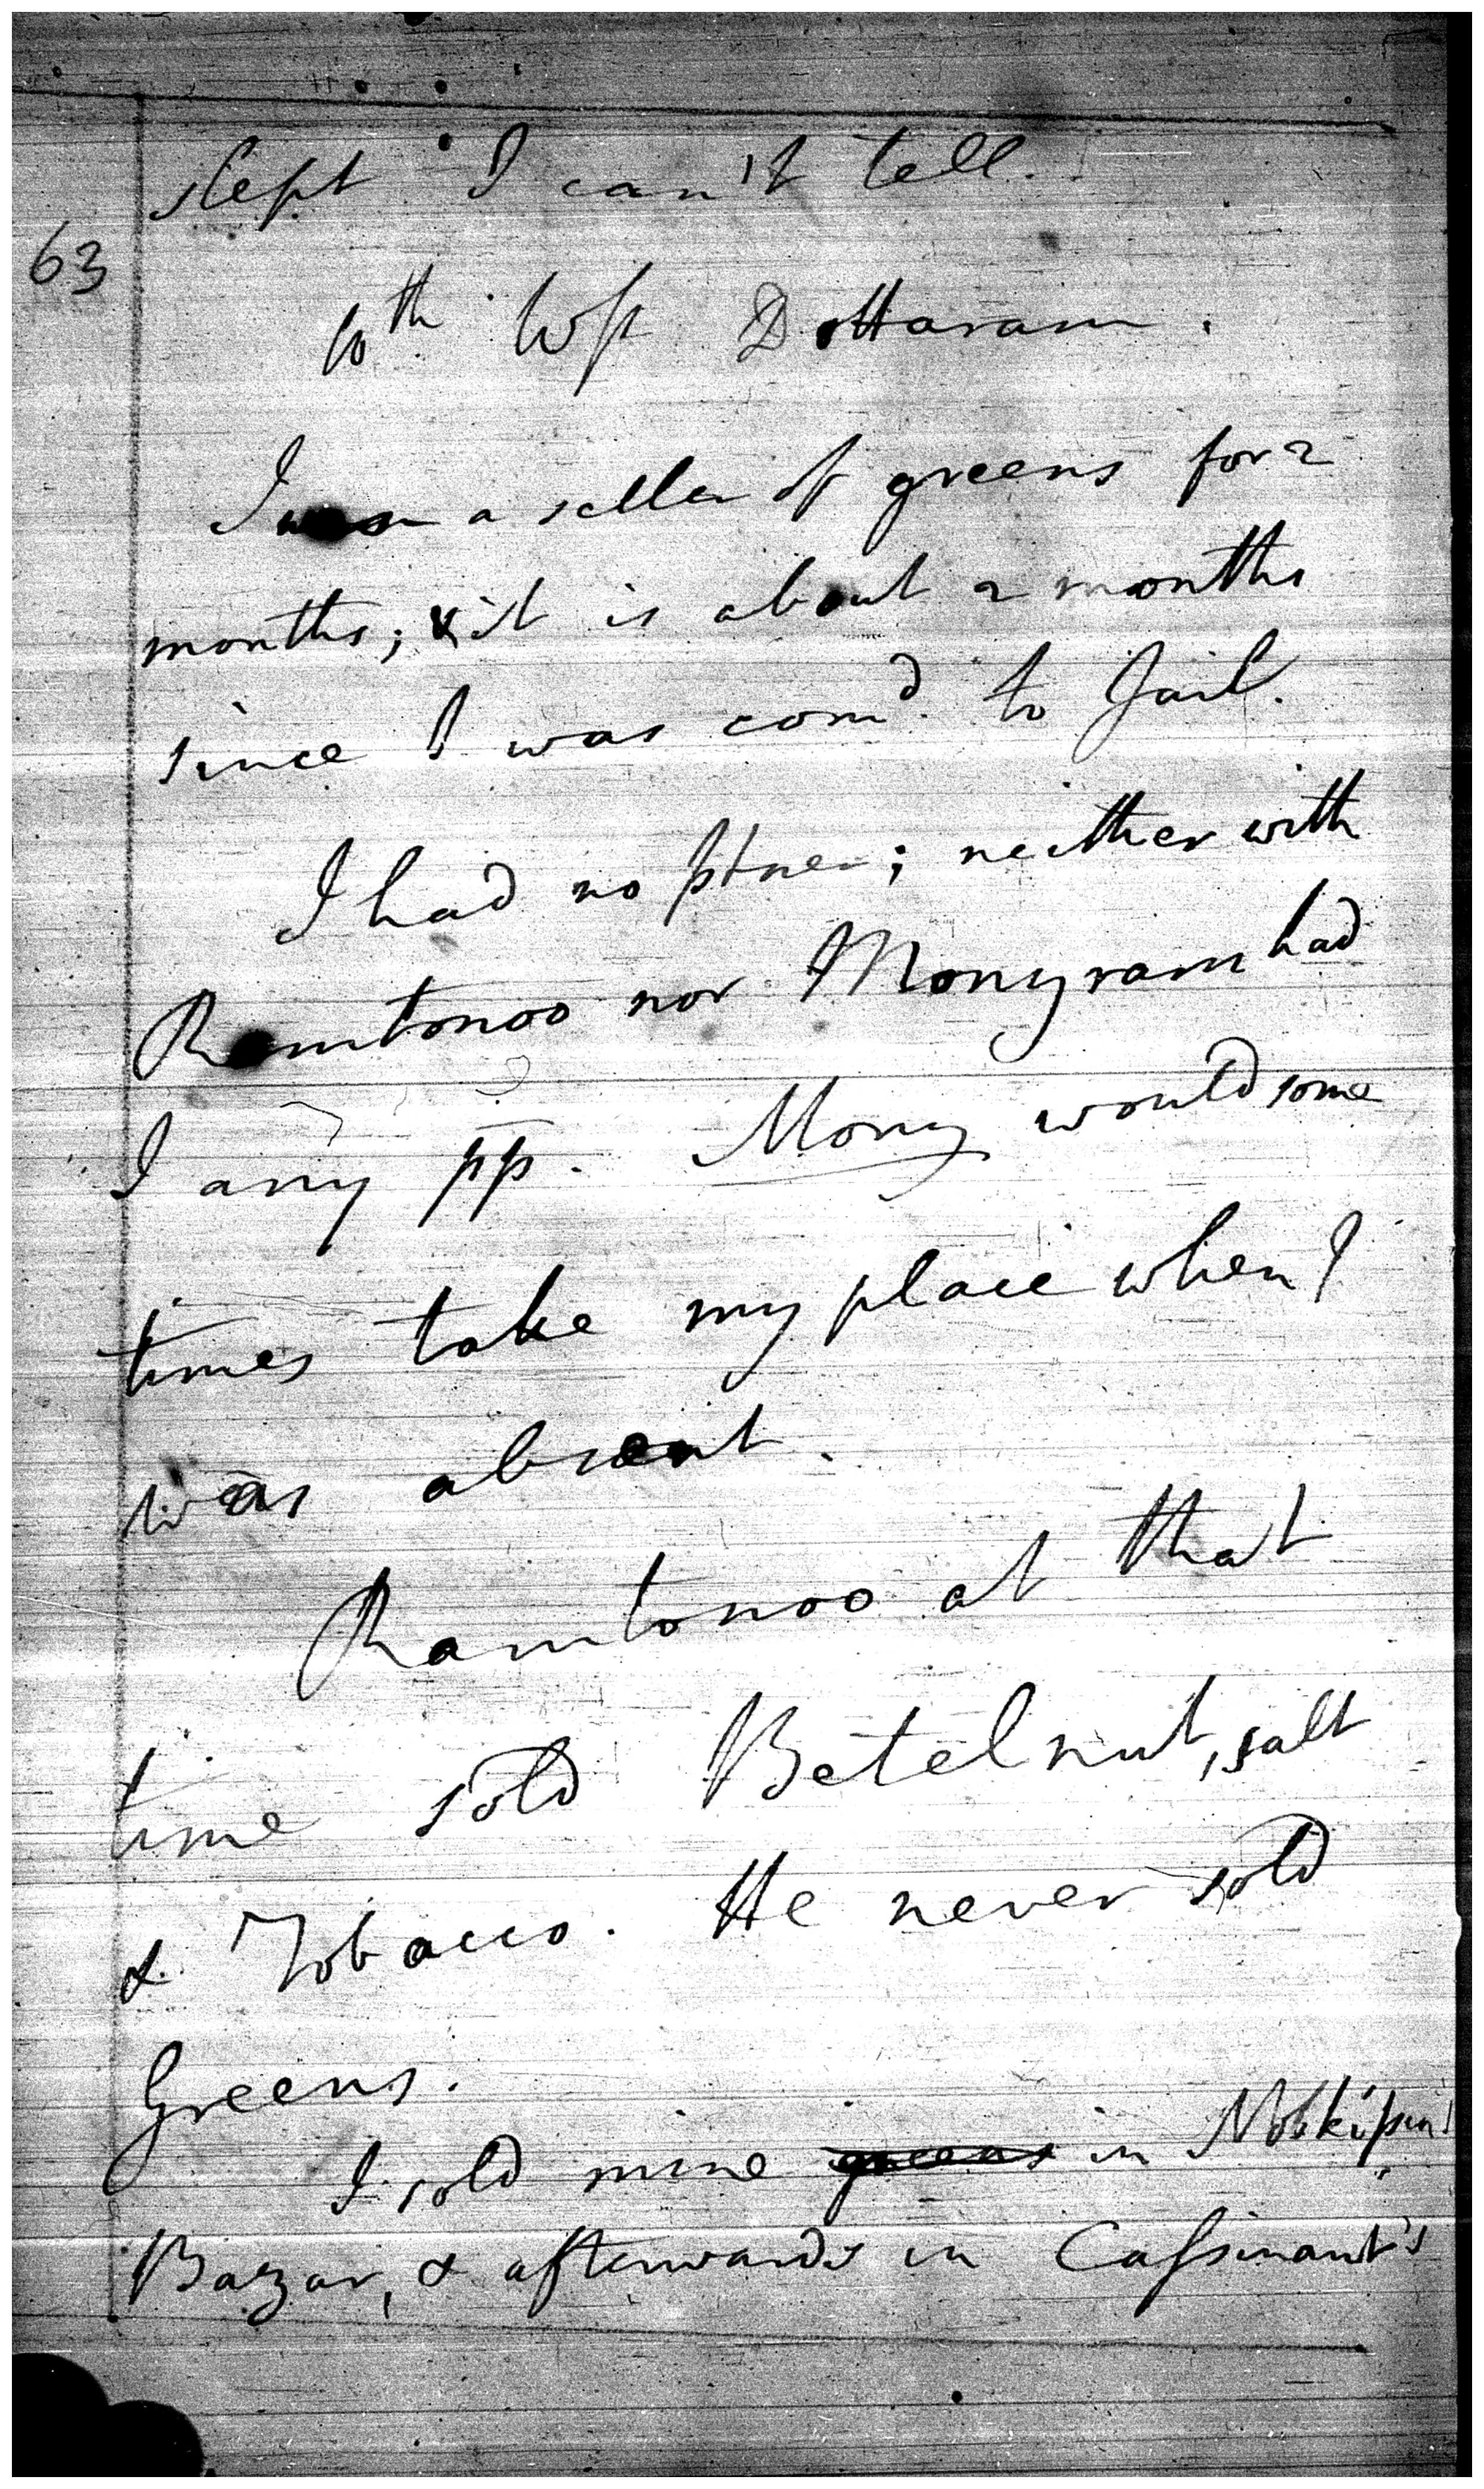 slept I can't tell.
63
10th Wss Dottaram.
I was a seller of greens for 2
months; & it is about 2 months
since I was comd. to Jail.
I had no ptner; neither with
Ramtonoo nor Monyram had
I any pp. Mony would some
times take my place when I
was absent.
Ramtonoo at that
time sold Betelnut, salt
& Tobacco. He never sold
Greens.
I sold mine greens in
Bazar, & afterwards in Cassinaut's